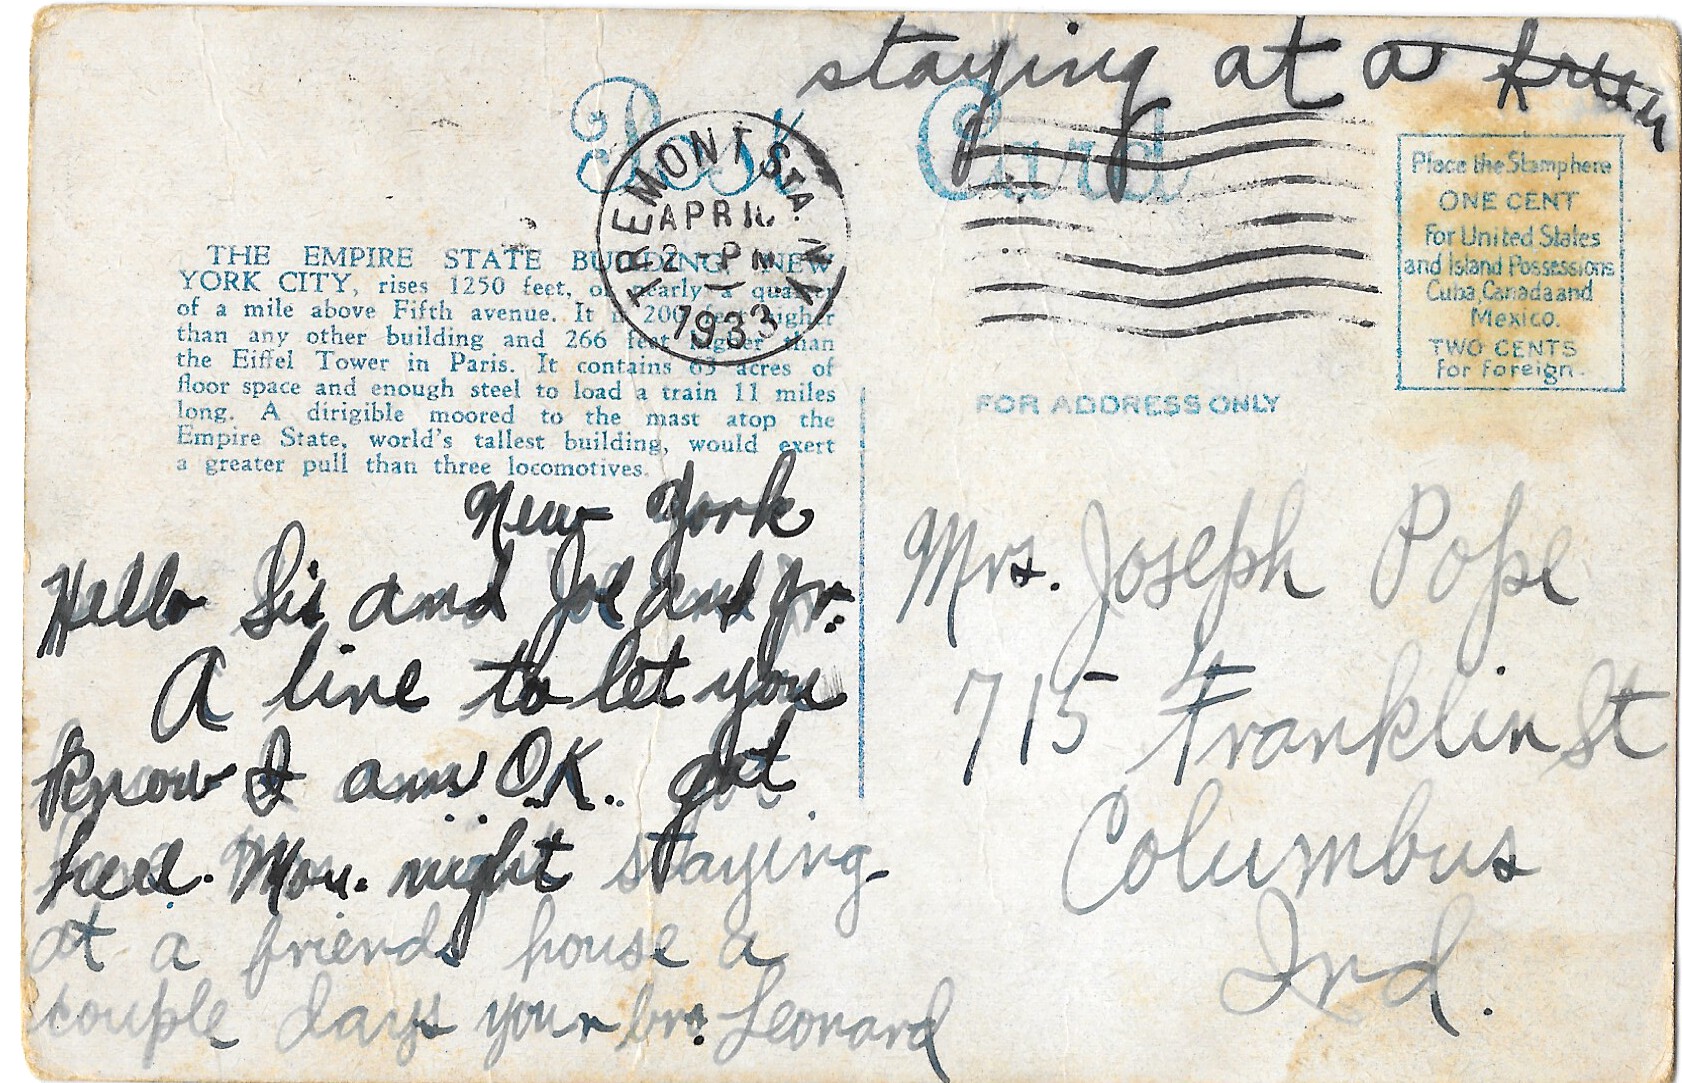 staying at a
Post Card
TREMONT STA. N.Y.
APR
2-PM
1933
Place the Stamp here
ONE CENT
For United States
and Island Possessions
Cuba, Canada and
Mexico.
TWO CENTS
For Foreign.
THE EMPIRE STATE BUILDING, NEW
YORK CITY, rises 1250 feet, or nearly a quarter
of a mile above Fifth avenue. It is 200 feet higher
than any other building and 266 feet higher than
the Eiffel Tower in Paris. It contains 63 acres of
floor space and enough steel to load a train 11 miles
long. A dirigible moored to the mast atop the
Empire State, world's tallest building, would exert
a greater pull than three locomotives.
New York
Hello Sis and Joe and Jr.
A line to let you
know I am O.K. got
here. Mon. night staying
at a friends house a
couple days your bro. Leonard
FOR ADDRESS ONLY
Mrs. Joseph Pope
715 Franklin St
Columbus
Ind.